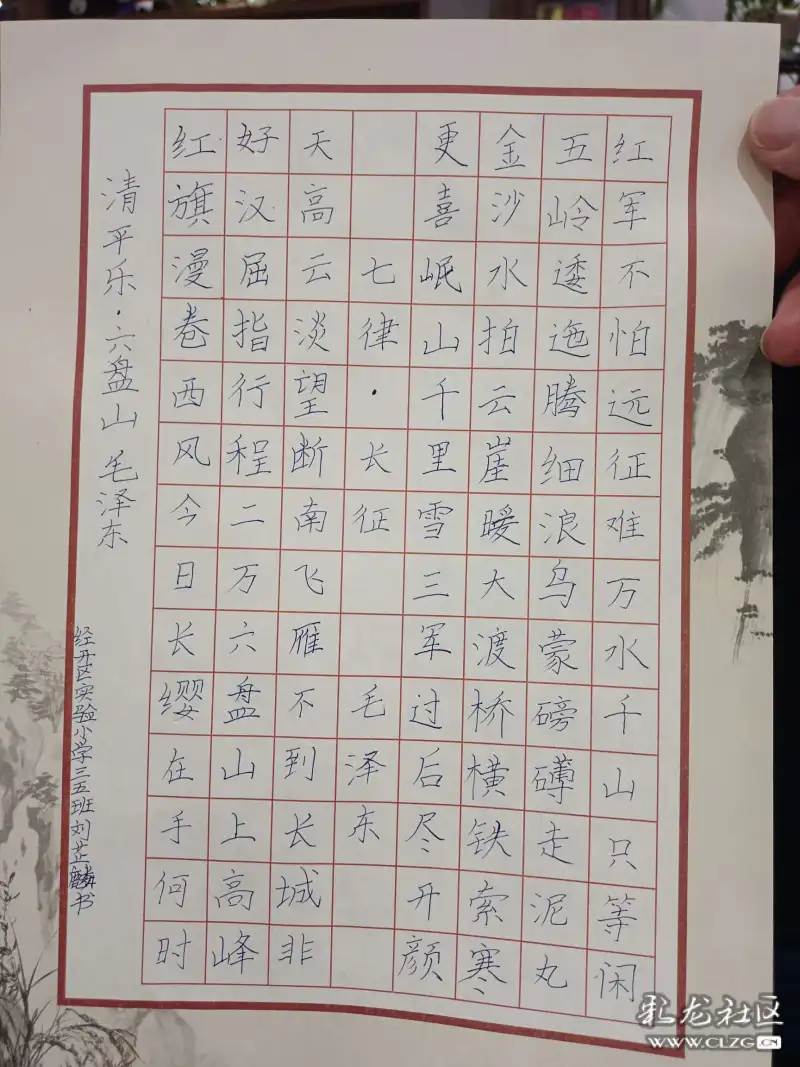 红军不怕远征难万水千山只等闲
五岭逶迤腾细浪乌蒙磅礴走泥丸
金沙水拍云崖暖大渡桥横铁索寒
更喜岷山千里雪三军过后尽开颜
七律·长征 毛泽东
天高云淡望断南飞雁不到长城非
好汉屈指行程二万六盘山上高峰
红旗漫卷西风今日长缨在手何时
清平乐·六盘山 毛泽东
经开区实验小学三五班刘芷麟书
彩龙社区
WWW.CLZG.CN